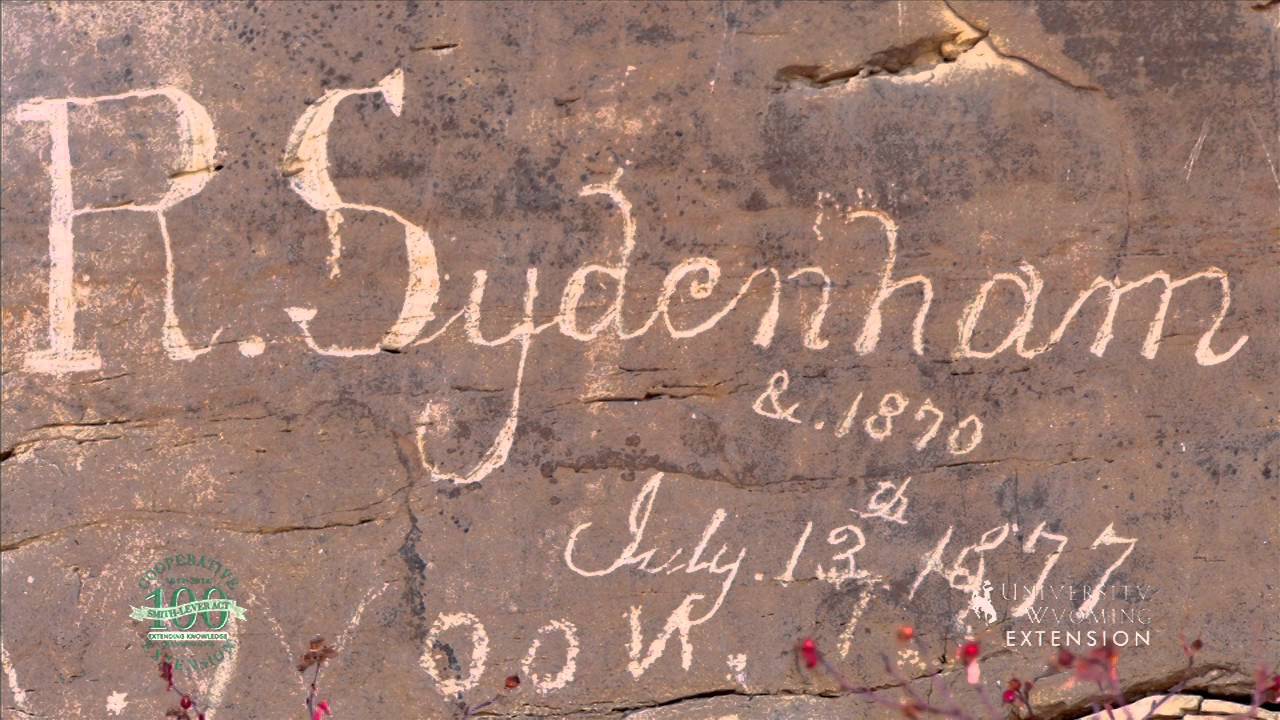 R. Sydenham
&. 1870
July. 13th 1877
COOPERATIVE
100
SMITH-LEVER ACT
EXTENDING KNOWLEDGE
EXTENSION
UNIVERSITY
WYOMING
EXTENSION